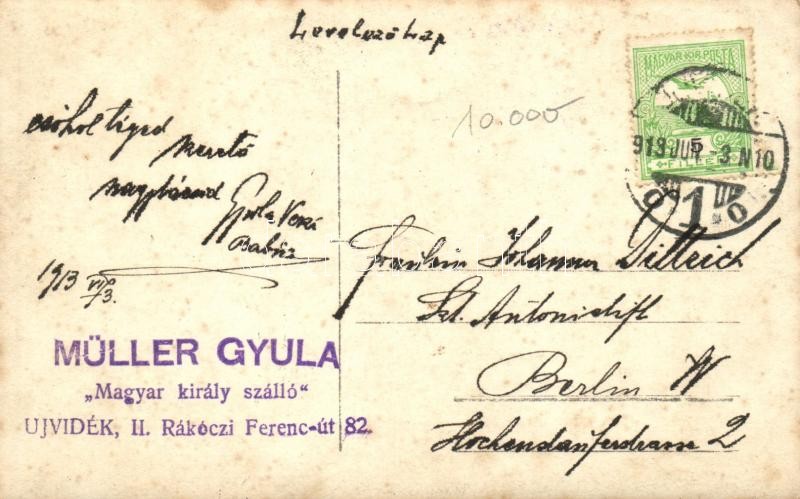 Levelező Lap
MAGYAR KIR. POSTA
5
FILLÉR
10.000
csókol téged
szerető
nagybácsid
Gyula
1913 VII/3.
913 JUL -3 N10
1
Fräulein Johanna Dittrich
St. Antonistift
Berlin W
2
MÜLLER GYULA
„Magyar király szálló“
UJVIDÉK, II. Rákóczi Ferenc-út 82.